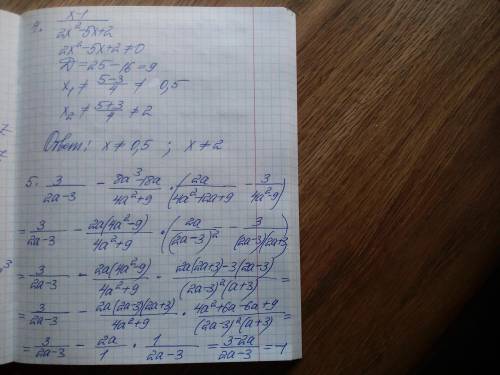 4. (x-1)/(2x²-5x+2)
2x²-5x+2≠0
D=25-16=9
x₁≠(5-3)/4≠0,5
x₂≠(5+3)/4≠2
Ответ: x≠0,5 ; x≠2
5. 3/(2a-3) - (8a³-18a)/(4a²+9) · (2a/(4a²-12a+9) - 3/(4a²-9))
= 3/(2a-3) - 2a(4a²-9)/(4a²+9) · (2a/(2a-3)² - 3/((2a-3)(2a+3)
= 3/(2a-3) - 2a(4a²-9)/(4a²+9) · (2a(2a+3)-3(2a-3))/((2a-3)²(a+3)) =
= 3/(2a-3) - 2a(2a-3)(2a+3)/(4a²+9) · (4a²+6a-6a+9)/((2a-3)²(a+3)) =
= 3/(2a-3) - 2a/1 · 1/(2a-3) = (3-2a)/(2a-3) = -1